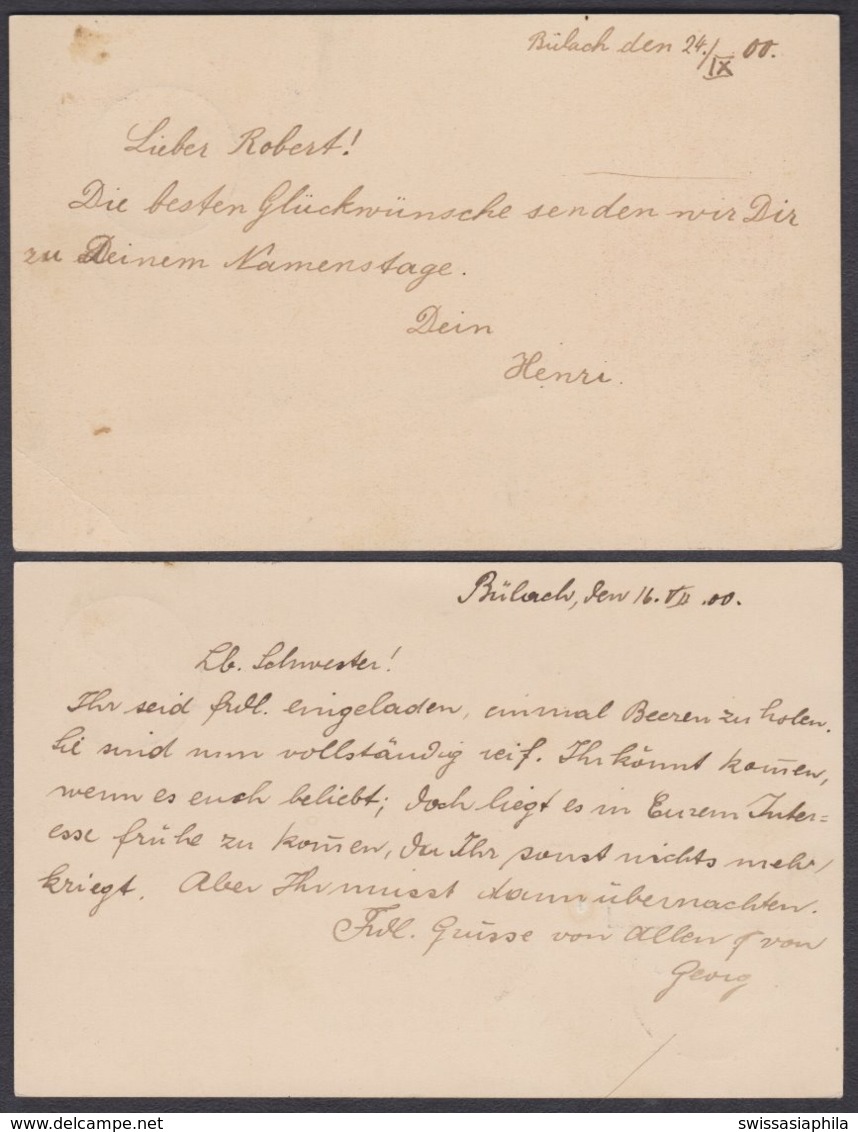 Bülach den 24./IX 00.
Lieber Robert!
Die besten Glückwünsche senden wir Dir
zu Deinem Namenstage.
Dein
Henri.
Bülach, den 16. VII .00.
Lb. Schwester!
Ihr seid frdl. eingeladen, einmal Beeren zu holen.
Sie sind nun vollständig reif. Ihr könnt kom̅en,
wenn es euch beliebt; doch liegt es in Eurem Inter=
esse frühe zu kom̅en, da Ihr sonst nichts mehr
kriegt. Aber Ihr müsst dann übernachten.
Frdl. Grüsse von Allen & von
Georg
www.delcampe.net
swissasiaphila